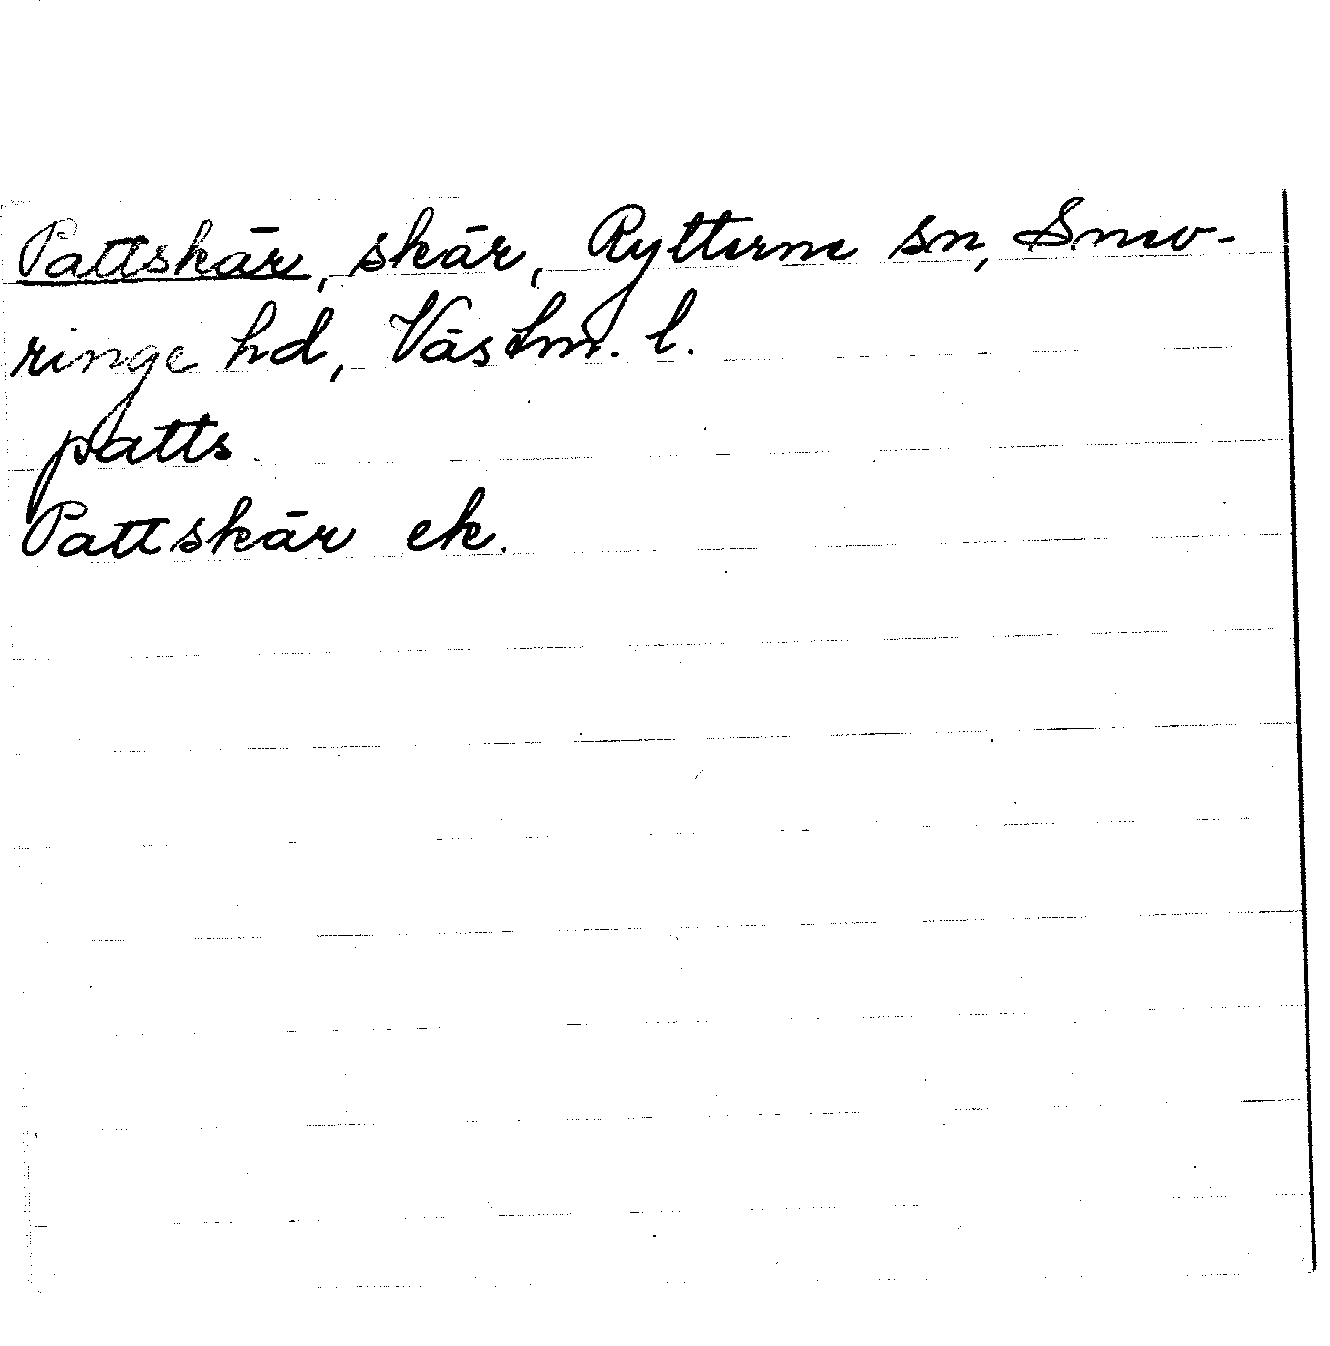 Pattskär, skär, Rytterne sn, Snev-
ringe hd, Västm. l.
patts
Pattskär ek.